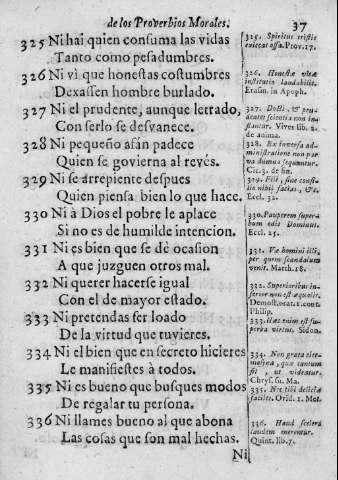 de los Proverbios Morales. 37
325 Ni hai quien consuma las vidas
Tanto como pesadumbres.
326 Ni vì que honestas costumbres
Dexassen hombre burlado.
327 Ni el prudente, aunque letrado,
Con serlo se desvanece.
328 Ni pequeño afán padece
Quien se govierna al revés.
329 Ni se arrepiente despues
Quien piensa bien lo que hace.
330 Ni à Dios el pobre le aplace
Si no es de humilde intencion.
331 Ni es bien que se dé ocasion
A que juzguen otros mal.
332 Ni querer hacerse igual
Con el de mayor estado.
333 Ni pretendas ser loado
De la virtud que tuvieres.
334 Ni el bien que en secreto hicieres
Le manifiestes à todos.
335 Ni es bueno que busques modos
De regalar tu persona.
336 Ni llames bueno al que abona
Las cosas que son mal hechas.
Ni
325. Spiritus tristis
exiccat ossa. Prov. 17.
326. Honestæ vitæ
institutio laudabilis.
Erasm. in Apoph.
327. Docti, & pru-
dentes scientia non in-
flantur. Vives lib. 2.
de anima.
328. Ex inversa ad-
ministratione non par
va damna sequuntur.
Cic. 3. de fin.
329. Fili, sine consi-
lio nihil facias, &c.
Eccl. 32.
330. Pauperem super
bum edit Dominus.
Eccl. 25.
331. Væ homini illi,
per quem scandalum
venit. Matth. 18.
332. Superioribus in-
feriore non est æqualis.
Demost. orat. 1. cont.
Philip.
333. Hæc enim est su-
perba virtus. Sidon.
334. Non grata elee-
mosina, quæ tantum
fit, ut videatur.
Chrys. su. Ma.
335. Nec tibi delicia
facilès. Ovid. 1. Met.
336. Haud scelera
laudem merentur.
Quint. lib. 7.